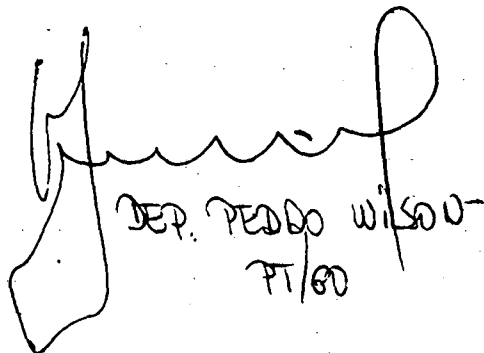 DEP. PEDRO WILSON
PT/GO